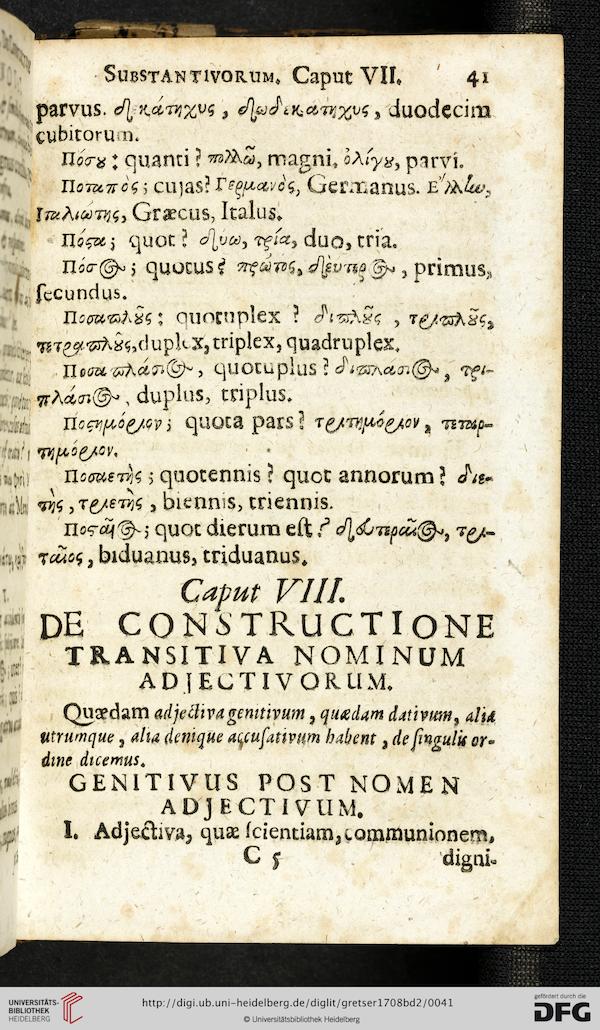 SUBSTANTIVORUM. Caput VII. 41
parvus. δεκάπηχυς, δωδεκαπηχυς, duodecim
cubitorum.
Πόσȣ; quanti? πολλῶ, magni, ὀλίγȣ, parvi.
Ποταπὸς; cujas? Γερμανὸς, Germanus. Ἕλλην,
Ιταλιώτης, Græcus, Italus.
Πόσα; quot? δύω, τρία, duo, tria.
Πόστος; quotus? πρῶτος, δεύτερος, primus,
ſecundus.
Ποσαπλȣ̃ς; quotuplex? διπλȣ̃ς, τριπλȣ̃ς,
τετραπλȣ̃ς, duplex, triplex, quadruplex.
Ποσαπλάσιος, quotuplus? διπλασιος, τρι-
πλάσιος, duplus, triplus.
Ποστημόριον; quota pars? τριτημόριον, τεταρ-
τημόριον.
Ποσαετὴς; quotennis? quot annorum? διε-
τὴς, τριετὴς, biennis, triennis.
Ποσταῖος; quot dierum eſt? δευτεραῖος, τρι-
ταῖος, biduanus, triduanus.
Caput VIII.
DE CONSTRUCTIONE
TRANSITIVA NOMINUM
ADJECTIVORUM.
Quædam adjectiva genitivum, quædam dativum, alia
utrumque, alia denique accuſativum habent, de ſingulis or-
dine dicemus.
GENITIVUS POST NOMEN
ADJECTIVUM.
I. Adjectiva, quæ ſcientiam, communionem,
C 5 digni-
UNIVERSITÄTS-
BIBLIOTHEK
HEIDELBERG
http://digi.ub.uni-heidelberg.de/diglit/gretser1708bd2/0041
© Universitätsbibliothek Heidelberg
gefördert durch die
DFG